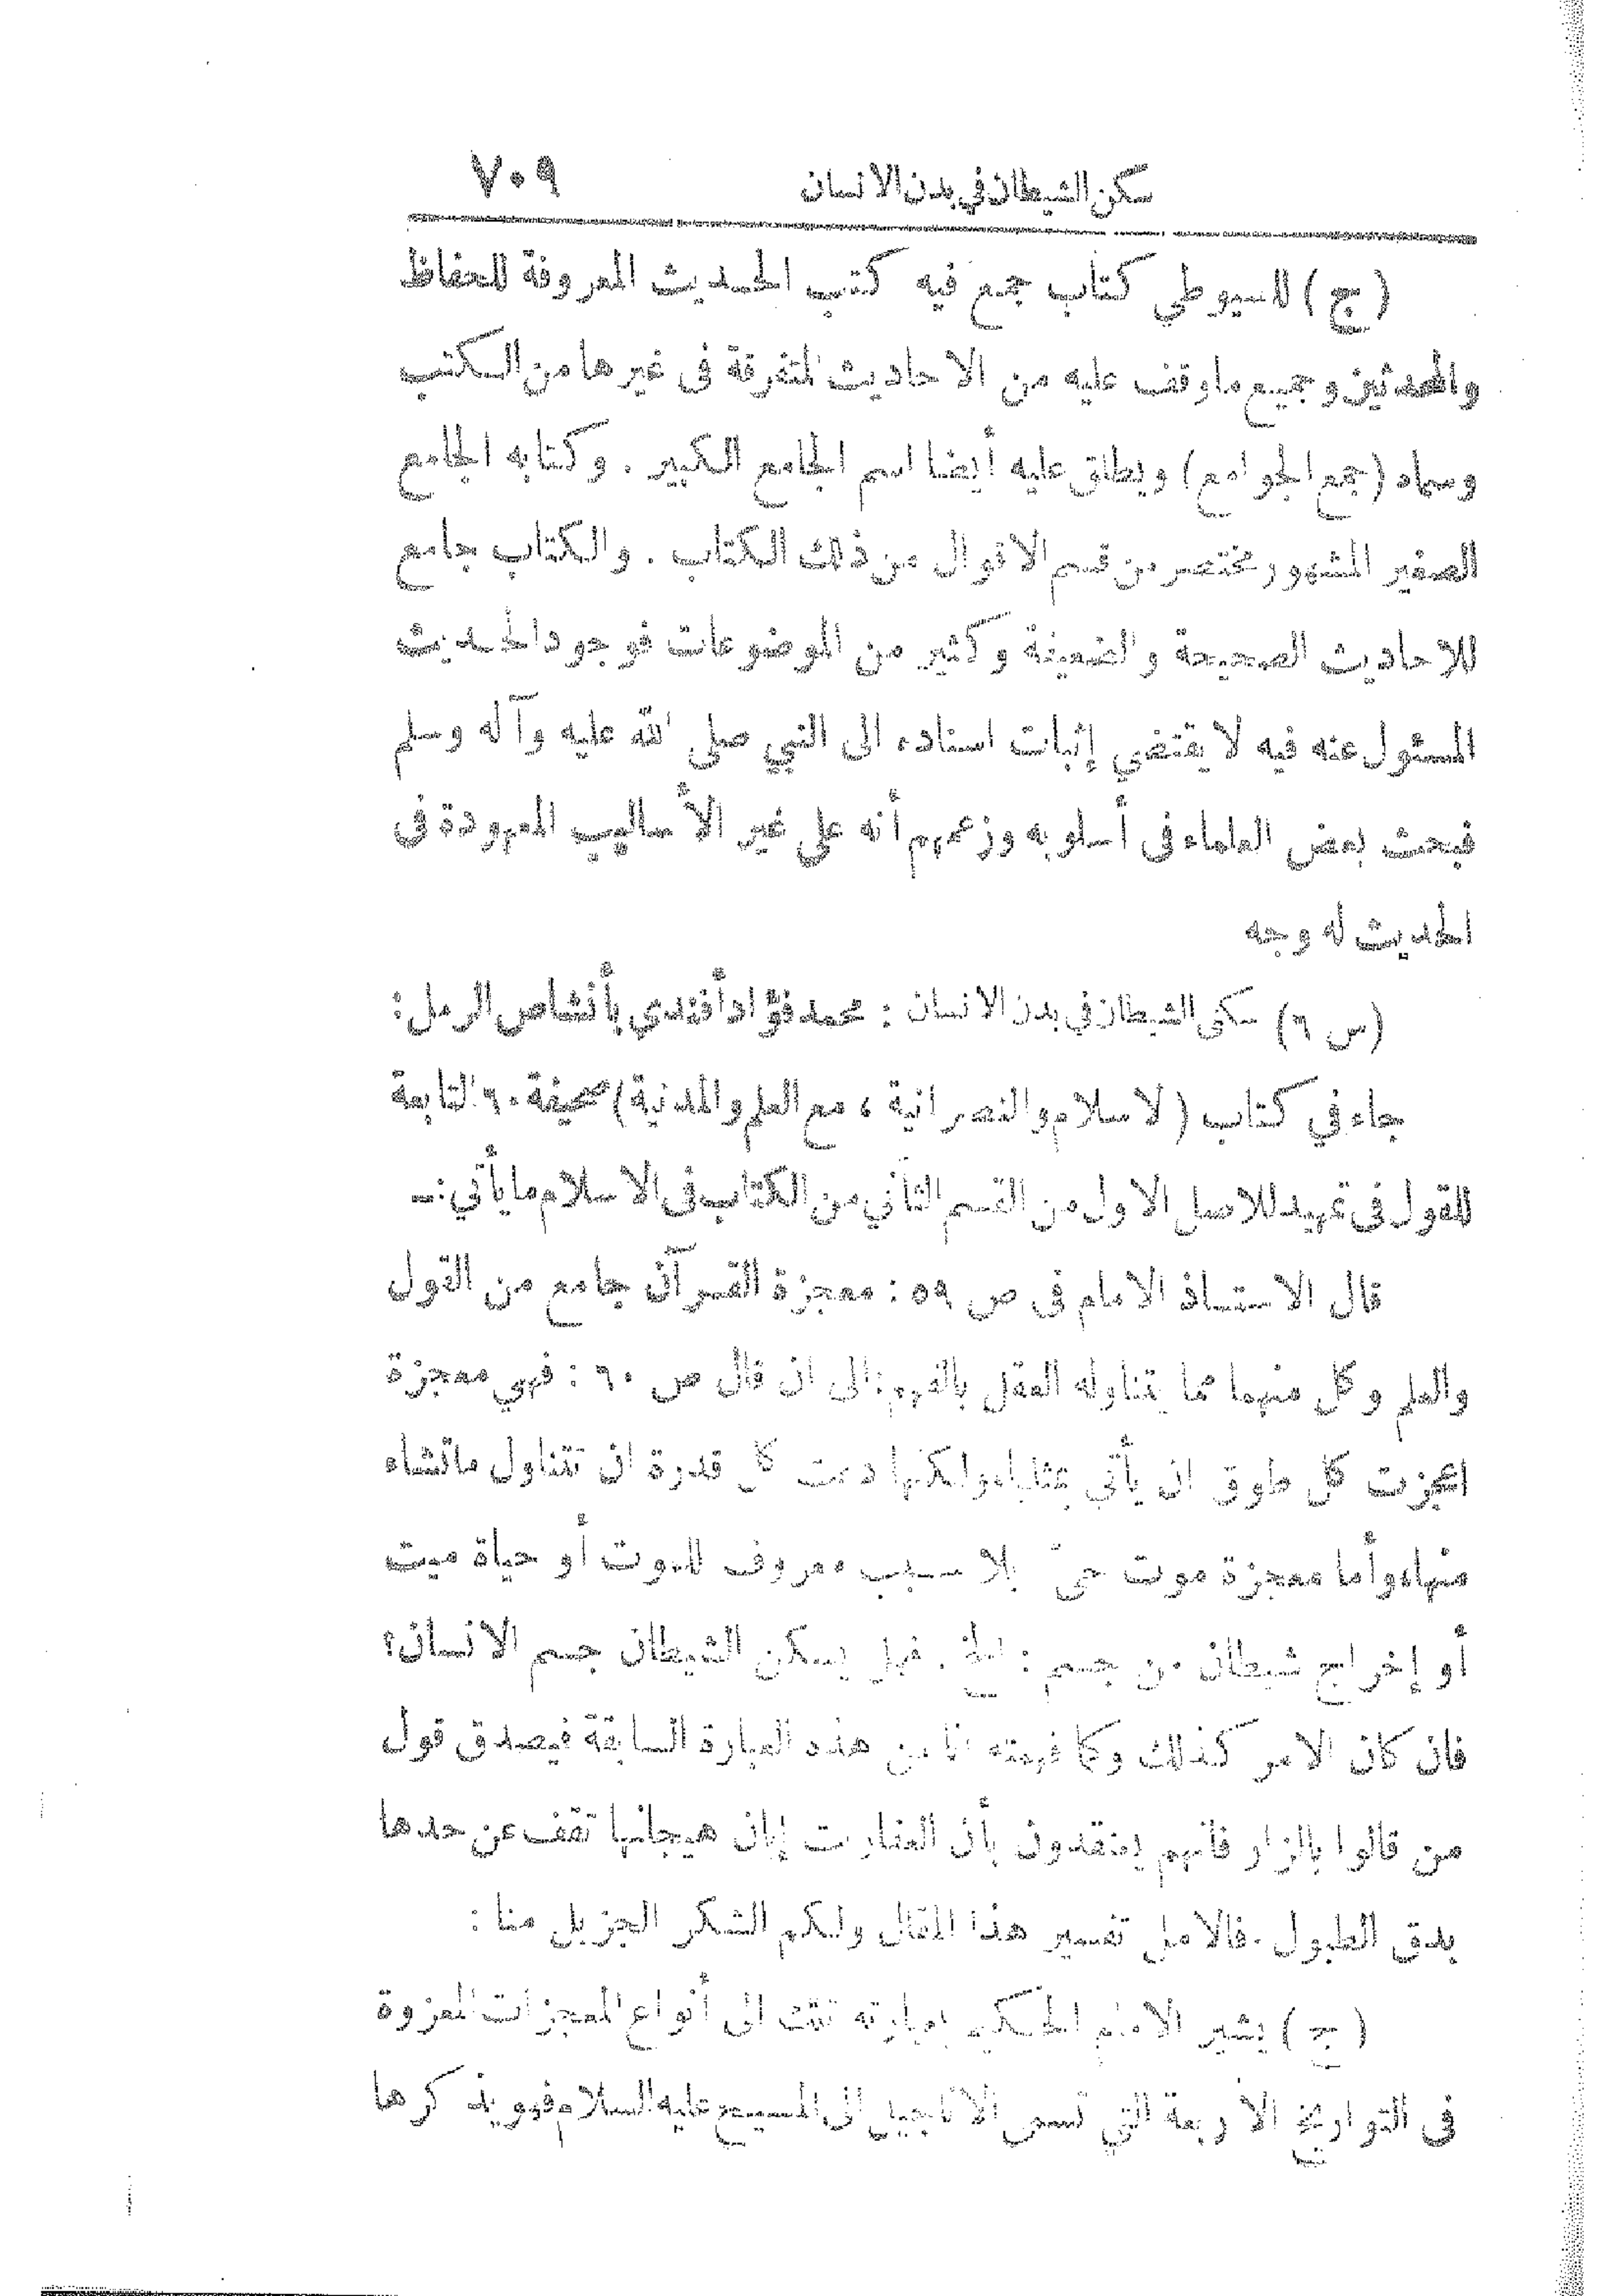 سكن الشيطان في بدن الانسان ٧٠٩
(ج) للسيوطي كتاب جمع فيه كتب الحديث المعروفة للحفاظ
والمحدثين وجميع ما وقف عليه من الاحاديث المتفرقة فى غيرها من الكتب
وسماه (جمع الجوامع) ويطلق عليه أيضا اسم الجامع الكبير . وكتابه الجامع
الصغير المشهور مختصر من قسم الاقوال من ذلك الكتاب . والكتاب جامع
للاحاديث الصحيحة والضعيفة وكثير من الموضوعات فوجود الحديث
المسئول عنه فيه لا يقتضي إثبات اسناده الى النبي صلى الله عليه وآله وسلم
فبحث بعض العلماء فى أسلوبه وزعمهم أنه على غير الأساليب المعهودة فى
الحديث له وجه
(س ٦) سكنى الشيطان في بدن الانسان : محمد فؤاد أفندي بأنشاص الرمل :
جاء في كتاب (الاسلام والنصرانية ، مع العلم والمدنية) صحيفة ٦٠ التابعة
للقول فى تمهيد للاصل الاول من القسم الثاني من الكتاب فى الاسلام ما يأتي :ــ
قال الاستاذ الامام فى ص ٥٩ : معجزة القرآن جامع من القول
والعلم وكل منهما مما يتناوله العقل بالفهم : الى ان قال ص ٦٠ : فهي معجزة
اعجزت كل طوق ان يأتي بمثلها، ولكنها دعت كل قدرة ان تتناول ما تشاء
منها، وأما معجزة موت حيّ بلا سبب معروف للموت أو حياة ميت
أو إخراج شيطان من جسم : الخ . فهل يسكن الشيطان جسم الانسان؟
فان كان الامر كذلك وكما فهمته انا من هذه العبارة السابقة فيصدق قول
من قالوا بالزار فانهم يعتقدون بأن العفارت إبان هيجانها تقف عن حدها
بدق الطبول . فالامل تفسير هذا المقال ولكم الشكر الجزيل منا :
(ج) يشير الامام الحكيم بعبارته تلك الى أنواع المعجزات المعزوة
فى التواريخ الأربعة التي تسمى الاناجيل الى المسيح عليه السلام فهو يذكرها